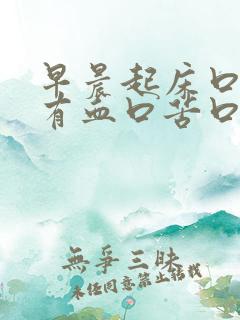 早晨起床口
有血口苦口
無爭三昧
未经同意禁止搭载